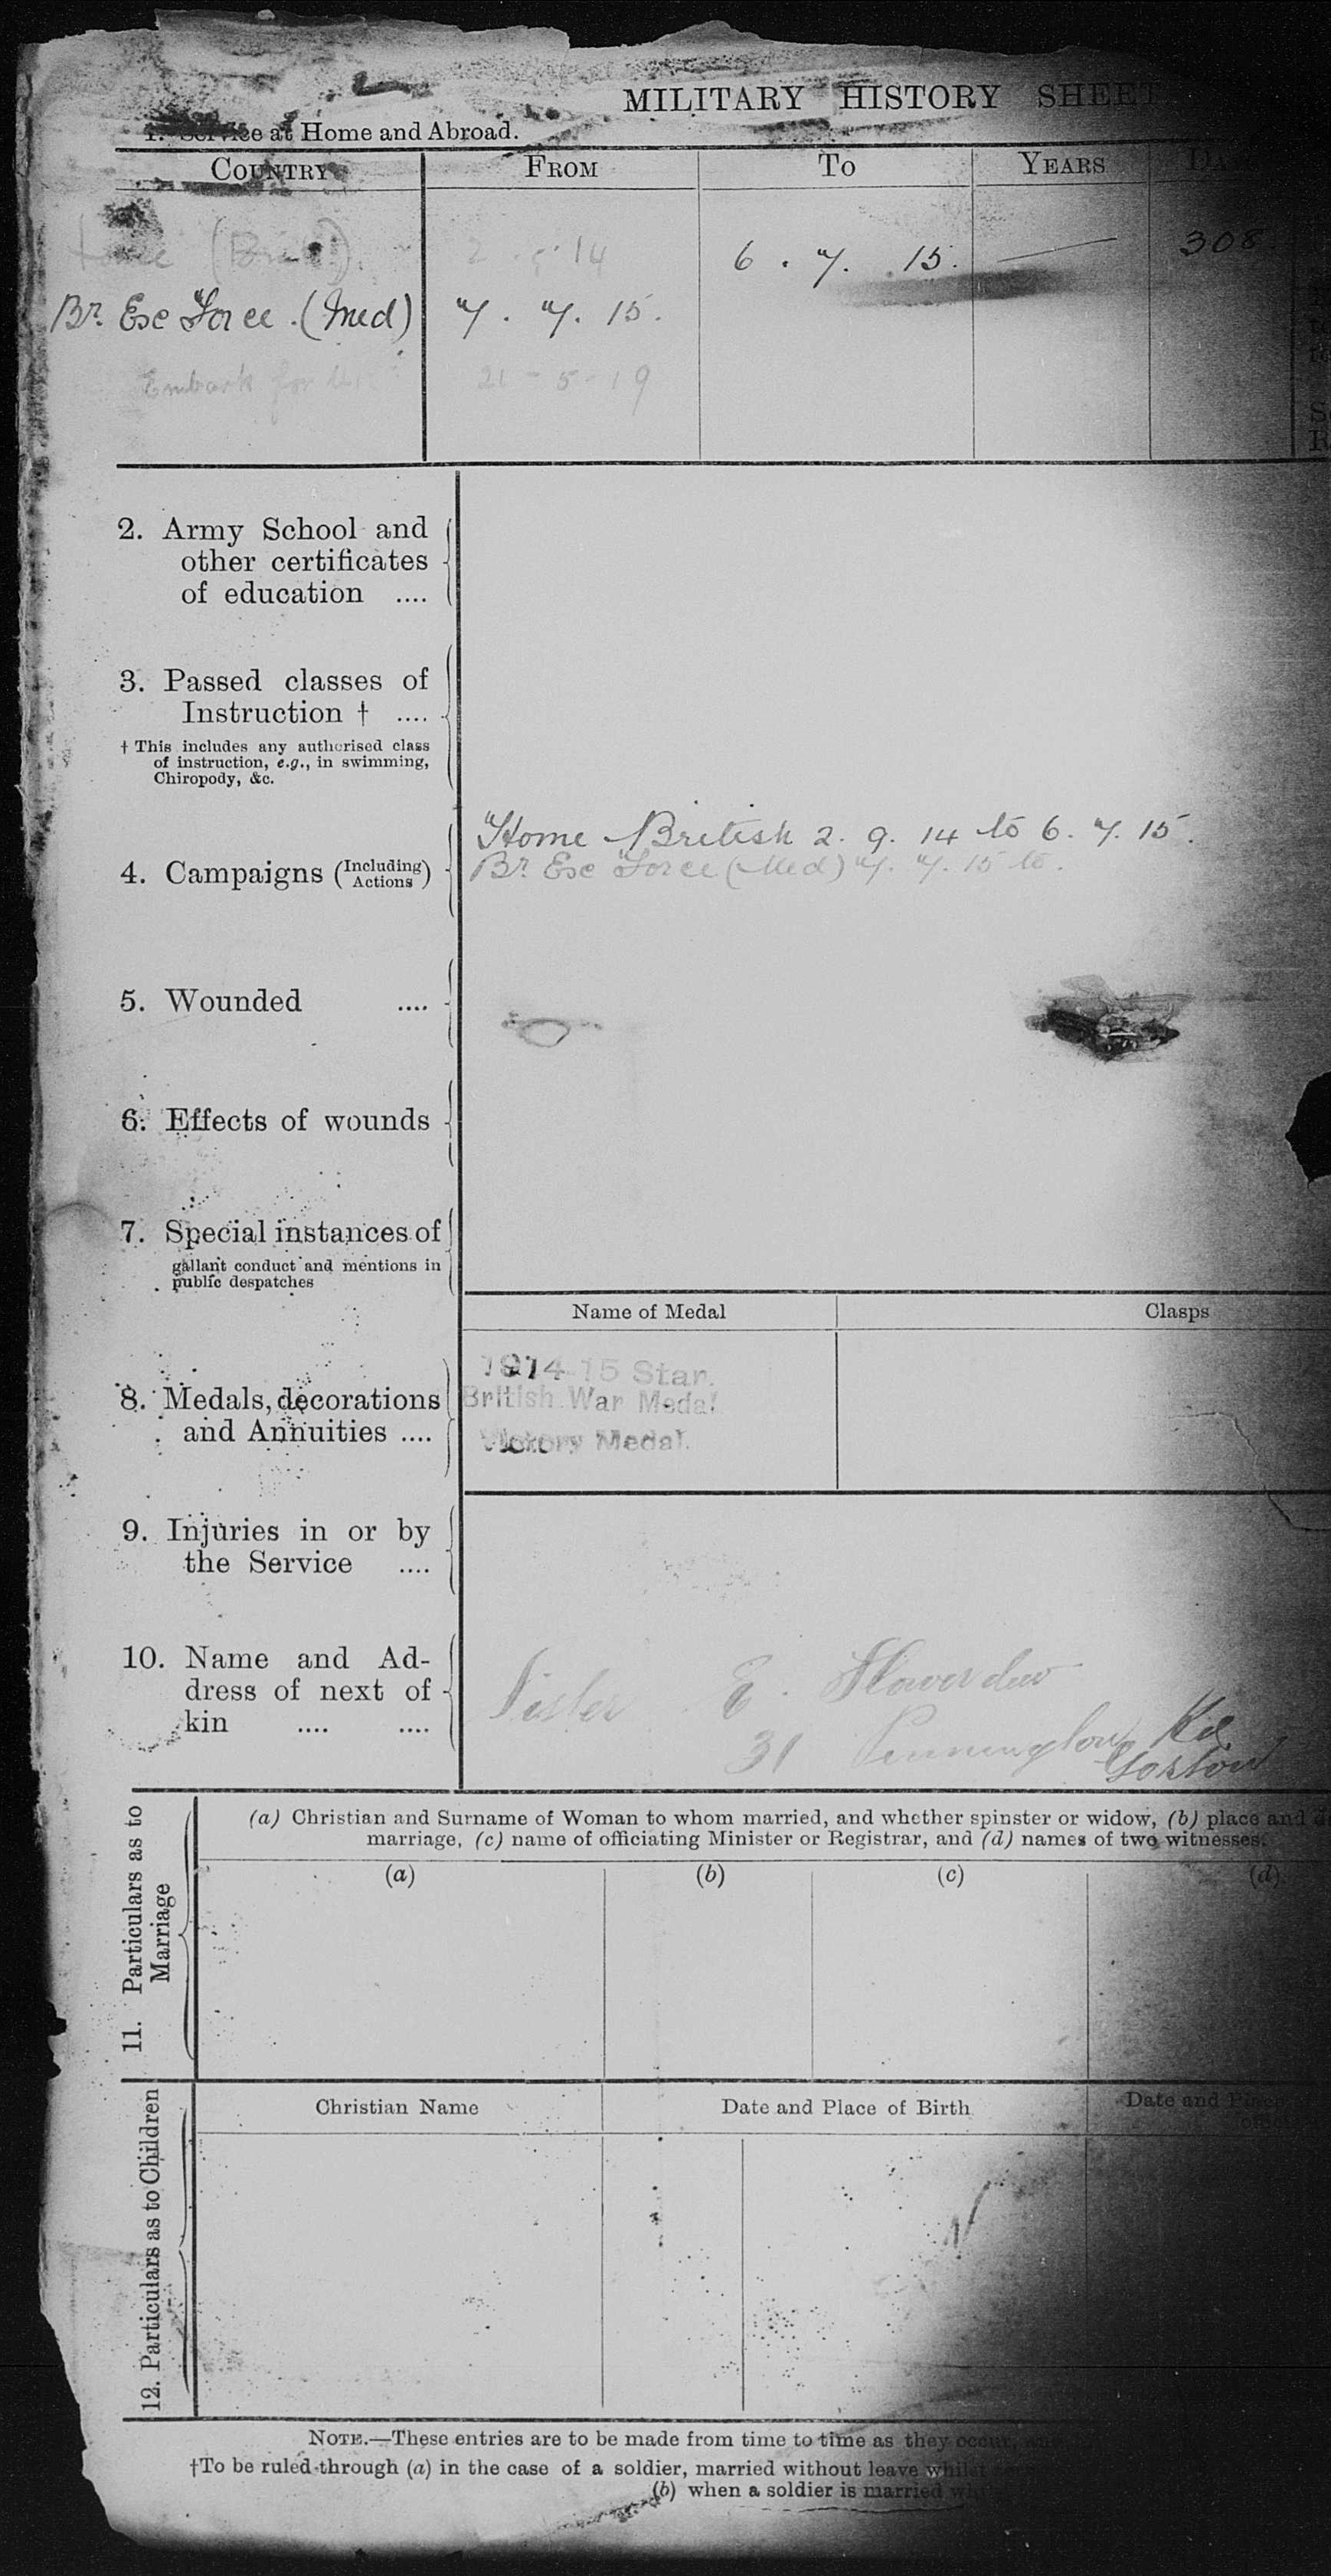 MILITARY HISTORY SHEET
1. Service at Home and Abroad.
COUNTRY FROM TO YEARS
Home (Brit 2 . . 14 6 . 7. 15. — 308
Br. Exc Force. (Med) 7 . 7. 15.
Embark for 21 - 5 - 19
2. Army School and
other certificates
of education ....
3. Passed classes of
Instruction † ....
† This includes any authorised class
of instruction, e.g., in swimming,
Chiropody, &c.
Home British 2. 9. 14 to 6. 7. 15.
Br. Exc Force (Med) 7. 7. 15 to.
4. Campaigns (Including Actions)
5. Wounded ....
6. Effects of wounds
7. Special instances of
gallant conduct and mentions in
public despatches
Name of Medal Clasps
1914-15 Star.
British War Medal.
Victory Medal.
8. Medals, decorations
and Annuities ....
9. Injuries in or by
the Service ....
10. Name and Ad-
dress of next of
kin .... ....
Sister E.
31 Rd
Gorton
11. Particulars as to
Marriage
(a) Christian and Surname of Woman to whom married, and whether spinster or widow, (b) place and
marriage, (c) name of officiating Minister or Registrar, and (d) names of two witnesses.
(a) (b) (c) (d)
12. Particulars as to Children
Christian Name Date and Place of Birth Date and Place
NOTE.—These entries are to be made from time to time as they occur,
†To be ruled through (a) in the case of a soldier, married without leave whilst
(b) when a soldier is married